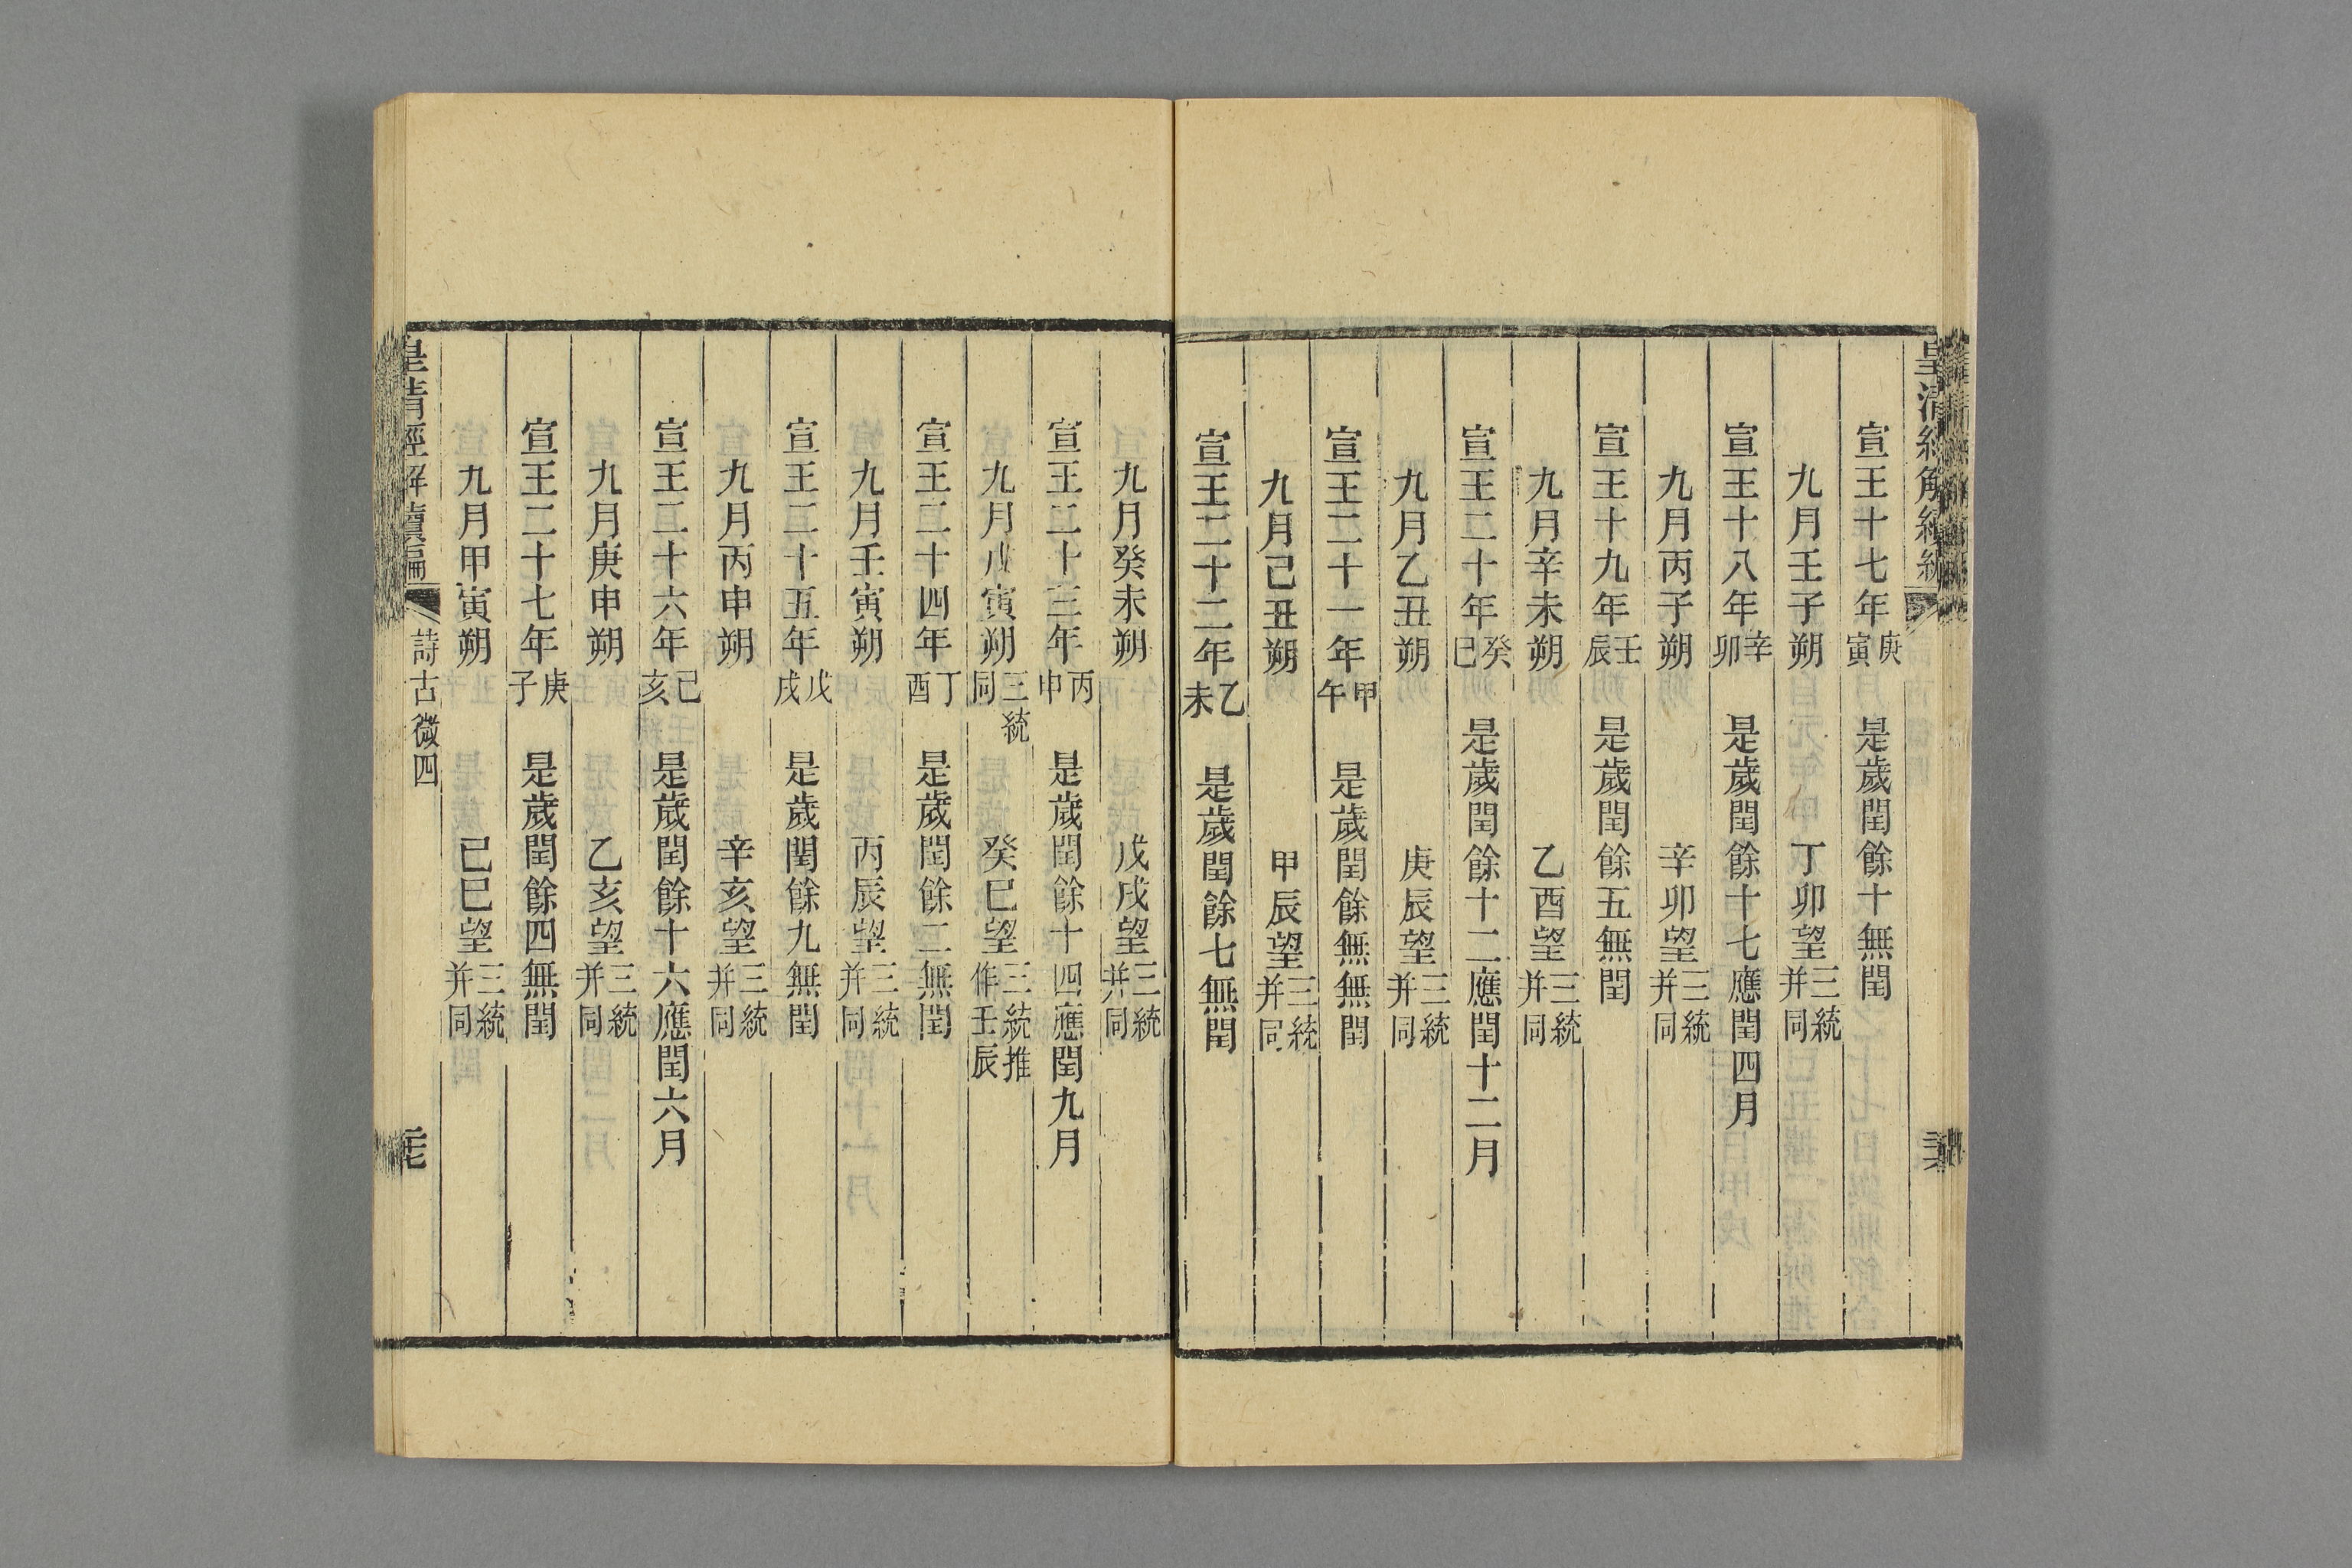 皇清經解續編
宣王十七年庚寅　是歲閏餘十無閏
九月壬子朔　丁卯望三統并同
宣王十八年辛卯　是歲閏餘十七應閏四月
九月丙子朔　辛卯望三統并同
宣王十九年壬辰　是歲閏餘五無閏
九月辛未朔　乙酉望三統并同
宣王二十年癸巳　是歲閏餘十二應閏十二月
九月乙丑朔　庚辰望三統并同
宣王二十一年甲午　是歲閏餘無無閏
九月己丑朔　甲辰望三統并同
宣王二十二年乙未　是歲閏餘七無閏
九月癸未朔　戊戌望三統并同
宣王二十三年丙申　是歲閏餘十四應閏九月
九月戊寅朔三統同　癸巳望三統推作壬辰
宣王二十四年丁酉　是歲閏餘二無閏
九月壬寅朔　丙辰望三統并同
宣王二十五年戊戌　是歲閏餘九無閏
九月丙申朔　辛亥望三統并同
宣王二十六年己亥　是歲閏餘十六應閏六月
九月庚申朔　乙亥望三統并同
宣王二十七年庚子　是歲閏餘四無閏
九月甲寅朔　己巳望三統并同
皇清經解續編　詩古微四